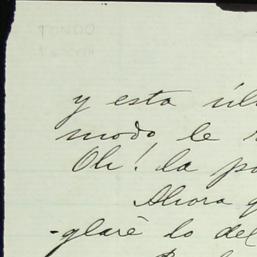 FONDO
y esta úl
modo le
Oh! la po
Ahora q
-glaré lo del